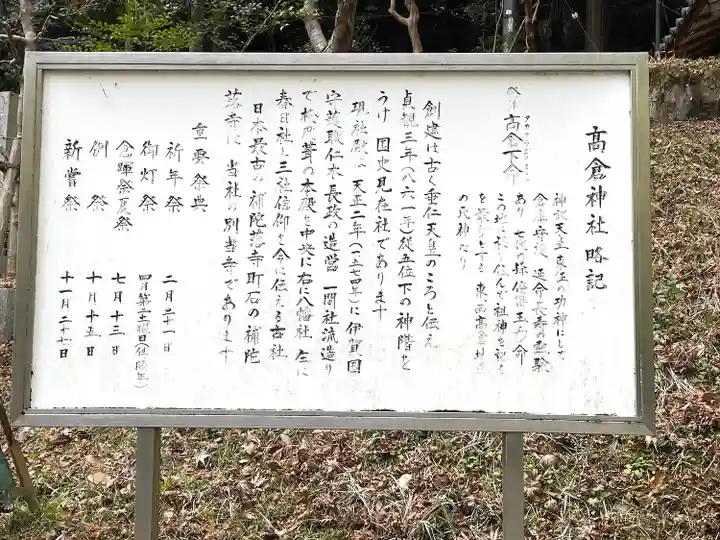 高倉神社略記
祭神 高倉下命
タカクラジノミコト
神武天皇東征の功神にして
倉庫守護 延命長寿の霊験
あり 七代の孫倭得玉彦命
この地に 住んで祖神を祀
を 東西高倉村
の氏神なり
創建は古く垂仁天皇のころと伝え
貞観三年(八六一年)従五位下の神階を
うけ 国史見在社であります
現社殿は 天正二年(一五七四年)に伊賀国
守護職仁木長政の造営 一間社流造り
で桧皮葺の本殿を中央に右に八幡社 左に
春日社と三社信仰を今に伝える古社
日本最古の補陀落寺町石の補陀
落寺は 当社の別当寺であります
重要祭典
祈年祭 二月二十一日
御灯祭 四月第二土曜日(隔年)
祭夏祭 七月十三日
例祭 十月十五日
新嘗祭 十一月二十七日